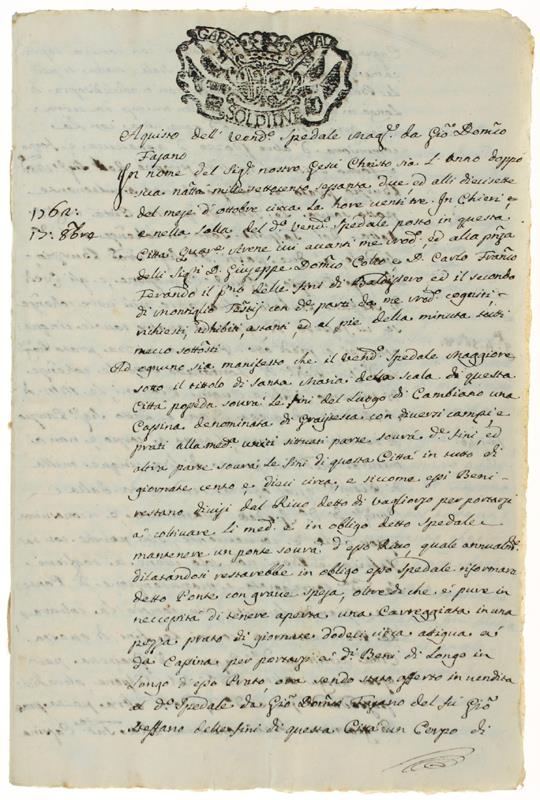 SOLDI
Aquisto dell' Vend.e Spedale Mag.e da Gio Dom.co
Fasano
In nome del Sig.r nostro Gesù Christo sia L'anno doppo
sua natta millesettecento sessanta due ed alli diecisette
1762:
17: 8bre
del mese d'ottobre circa la hore venti tre In Chieri e
e nella solla del d.o vend.e spedale posto in questa
Città quare avene cui avanti me ed alla p.nza
delli Sig.ri D. Giuseppe Dom.co Colto e D. Carlo Franco
Ferando il p.mo delle fini di Baldissero ed il secondo
di Montiglio Test.ij con d.e parti da me cogniti
richiesti, adhibiti, astanti ed al pie della minuta tutti
meco sottosti
Ad ognuno sia manifesto che il vend.e Spedale Maggiore
sotto il tittolo di santa Maria della scala di questa
Città possieda sovra le fini del Luogo di Cambiano una
Cassina denominata di con diversi campi, e
prati alla med.a uniti situati parte sovra d.e fini, ed
altra parte sovra le fini di questa Città in tutto di
giornate cento e dieci circa, e siccome essi Beni
restano divisi dal Rivo detto di per portarsi
a coltivare li med.i è in obligo detto Spedale
mantenere un ponte sovra d'esso Rivo, quale annualm.te
dilatandosi restarebbe in obligo esso Spedale riformare
detto Ponte con grave spesa, oltre di che è pure in
neccessità di tenere aperta una Carreggiata in una
pezza prato di giornate dodeci circa attigua a
da Cassina per portarsi a d.i Beni di Longo in
Longo d'esso Prato, ora sendo stato offerto in vendita
al d.o Spedale da Gio Dom.co Fasano del fu Gio
Steffano delle fini di questa Città un Corpo di